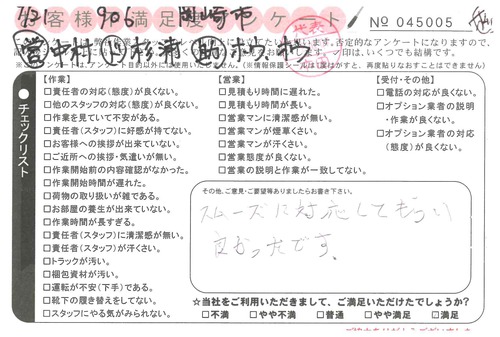 7/31 906 岡崎市
お客様満足アンケート No 045005
営 中村 ド 杉浦 助
否定的なアンケートになりますので、
【作業】
□責任者の対応(態度)が良くない。
□他のスタッフの対応(態度)が良くない。
□作業を見ていて不安がある。
□責任者(スタッフ)に好感が持てない。
□お客様への挨拶が出来ていない。
□ご近所への挨拶・気遣いが無い。
□作業開始前の内容確認がなかった。
□作業開始時間が遅れた。
□荷物の取り扱いが雑である。
□お部屋の養生が出来ていない。
□作業時間が長すぎる。
□責任者(スタッフ)に清潔感が無い。
□責任者(スタッフ)が汗くさい。
□トラックが汚い。
□梱包資材が汚い。
□運転が不安(下手)である。
□靴下の履き替えをしてない。
□スタッフにやる気がみられない。
【営業】
□見積もり時間に遅れた。
□見積もり時間が長い。
□営業マンに清潔感が無い。
□営業マンが煙草くさい。
□営業マンが汗くさい。
□営業態度が良くない。
□営業の説明と作業が一致してない。
【受付・その他】
□電話の対応が良くない。
□オプション業者の説明
・作業が良くない。
□オプション業者の対応
(態度)が良くない。
チェックリスト
その他、ご意見・ご要望等ありましたらお書き下さい。
スムーズに対応してもらい
良かったです。
☆当社をご利用いただきまして、ご満足いただけたでしょうか?
□不満 □やや不満 □普通 □やや満足 □満足